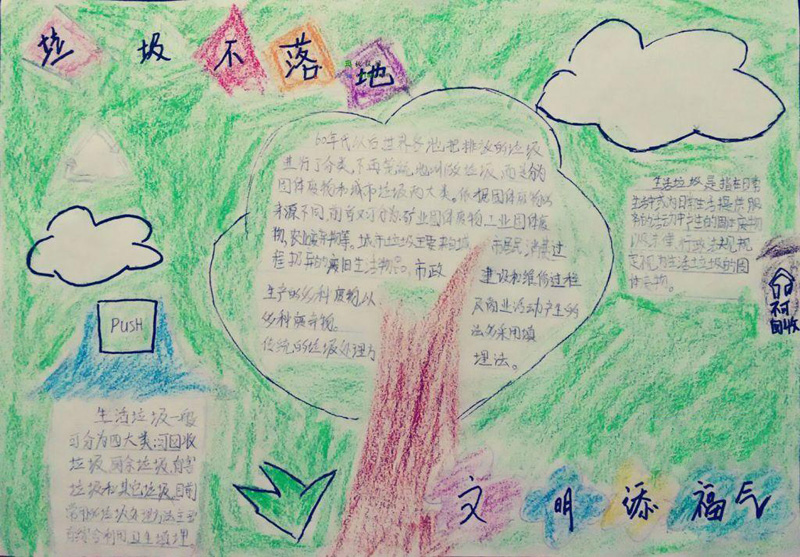 垃圾不落地
60年代以后世界各地把排放的垃圾
进行了分类,不再笼统地叫做垃圾,而是分为
固体废物和城市垃圾两大类。依据固体废物的
来源不同,前者又可分为矿业固体废物、工业固体废
物、农业废弃物等。城市垃圾主要指城市居民消费过
程抛弃的废旧生活物品,市政建设和维修过程
生产的各种废物,以及商业活动产生的
各种废弃物。法多采用填
传统的垃圾处理方埋法。
生活垃圾是指在日常
生活中或为日常生活提供服
务的活动中产生的固体废物
以及法律、行政法规规
定视为生活垃圾的固
体废物。
不可
回收
PUSH
生活垃圾一般
可分为四大类:可回收
垃圾、厨余垃圾、有害
垃圾和其它垃圾。目前
常用的垃圾处理方法主要
有综合利用、卫生填埋
文明添福气